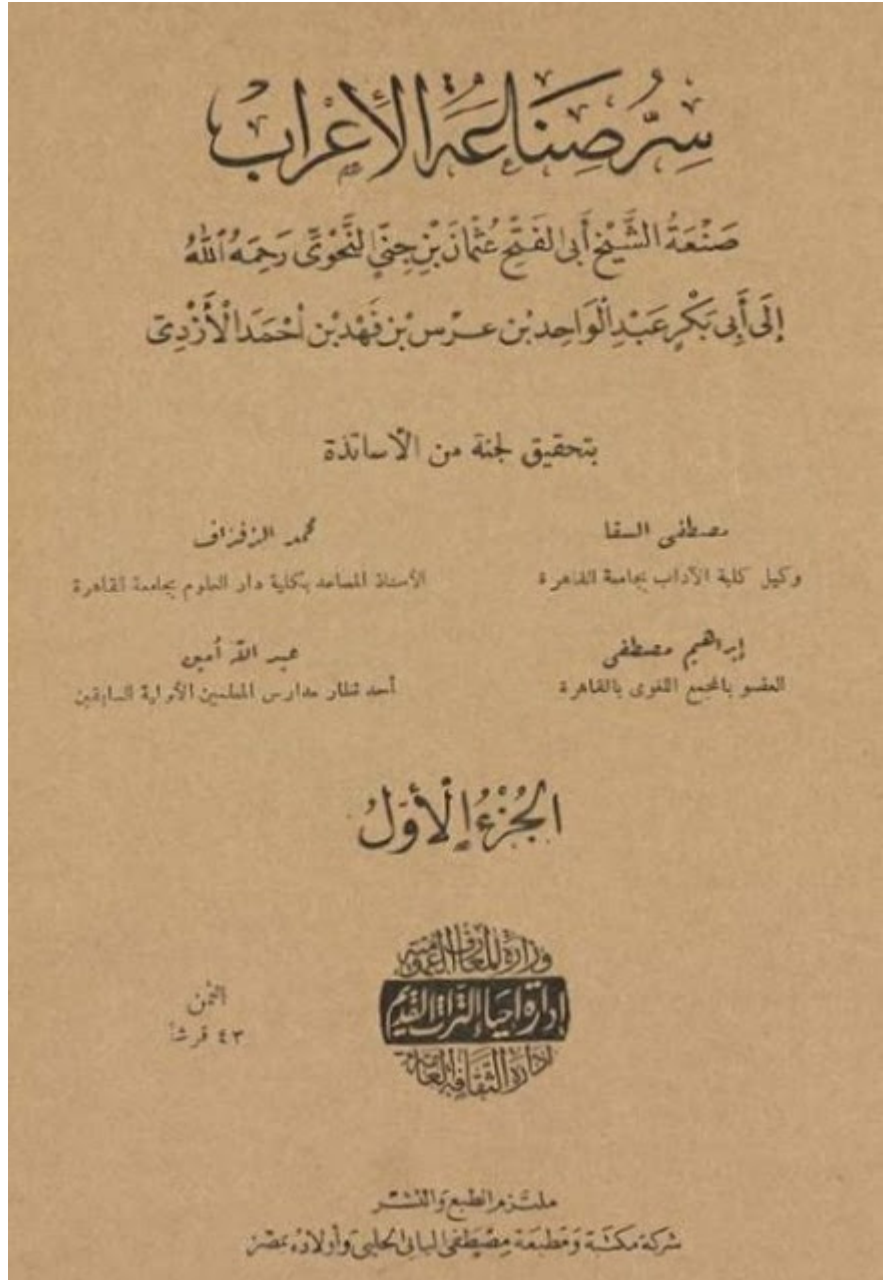 سِرُّ صِنَاعَةِ الْإِعْرَابِ
صَنْعَةُ الشَّيْخِ أَبِي الفَتْحِ عُثْمَانَ بْنِ جِنِّي النَّحْوِيّ رَحِمَهُ اللهُ
إِلَى أَبِي بَكْرٍ عَبْدِ الْوَاحِدِ بْن عرس بْن فَهْد بْن أَحْمَدَ الْأَزْدِيّ
بتحقيق لجنة من الأساتذة
مصطفى السقا
وكيل كلية الآداب بجامعة القاهرة
محمد الزفزاف
الأستاذ المساعد بكلية دار العلوم بجامعة القاهرة
إبراهيم مصطفى
العضو بالمجمع اللغوى بالقاهرة
عبد الله أمين
أحد نظار مدارس المعلمين الأولية السابقين
الجُزْءُ الْأَوَّلُ
وزارة المعارف العمومية
إدارة إحياء التراث القديم
إدارة الثقافة العامة
الثمن
٤٣ قرشاً
ملتزم الطبع والنشر
شركة مكتبة ومطبعة مصطفى البابى الحلبى وأولاده بمصر